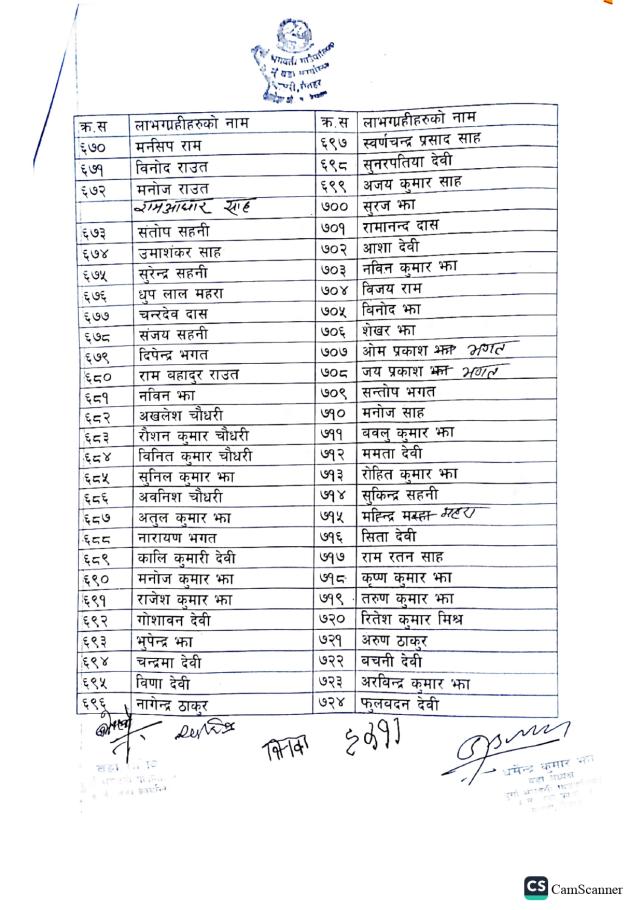 क्र.स लाभग्राहीहरुको नाम क्र.स लाभग्राहीहरुको नाम
६७० मनसिप राम ६९७ स्वर्णचन्द्र प्रसाद साह
६७१ विनोद राउत ६९८ सुनरपतिया देवी
६७२ मनोज राउत ६९९ अजय कुमार साह
रामआधार साह ७०० सुरज झा
६७३ संतोष सहनी ७०१ रामानन्द दास
६७४ उमाशंकर साह ७०२ आशा देवी
६७५ सुरेन्द्र सहनी ७०३ नविन कुमार झा
६७६ धुप लाल महरा ७०४ विजय राम
६७७ चन्रदेव दास ७०५ विनोद झा
६७८ संजय सहनी ७०६ शेखर झा
६७९ दिपेन्द्र भगत ७०७ ओम प्रकाश झा भगत
६८० राम बहादुर राउत ७०८ जय प्रकाश झा भगत
६८१ नविन झा ७०९ सन्तोष भगत
६८२ अखलेश चौधरी ७१० मनोज साह
६८३ रौशन कुमार चौधरी ७११ बवलु कुमार झा
६८४ विनित कुमार चौधरी ७१२ ममता देवी
६८५ सुनिल कुमार झा ७१३ रोहित कुमार झा
६८६ अवनिश चौधरी ७१४ सुकिन्द्र सहनी
६८७ अतुल कुमार झा ७१५ महिन्द्र महरा
६८८ नारायण भगत ७१६ सिता देवी
६८९ कालि कुमारी देवी ७१७ राम रतन साह
६९० मनोज कुमार झा ७१८ कृष्ण कुमार झा
६९१ राजेश कुमार झा ७१९ तरुण कुमार झा
६९२ गोशावन देवी ७२० रितेश कुमार मिश्र
६९३ भुपेन्द्र झा ७२१ अरुण ठाकुर
६९४ चन्द्रमा देवी ७२२ बचनी देवी
६९५ विणा देवी ७२३ अरविन्द्र कुमार झा
६९६ नागेन्द्र ठाकुर ७२४ फुलवदन देवी
धर्मेन्द्र कुमार झा
वडा अध्यक्ष
CS CamScanner